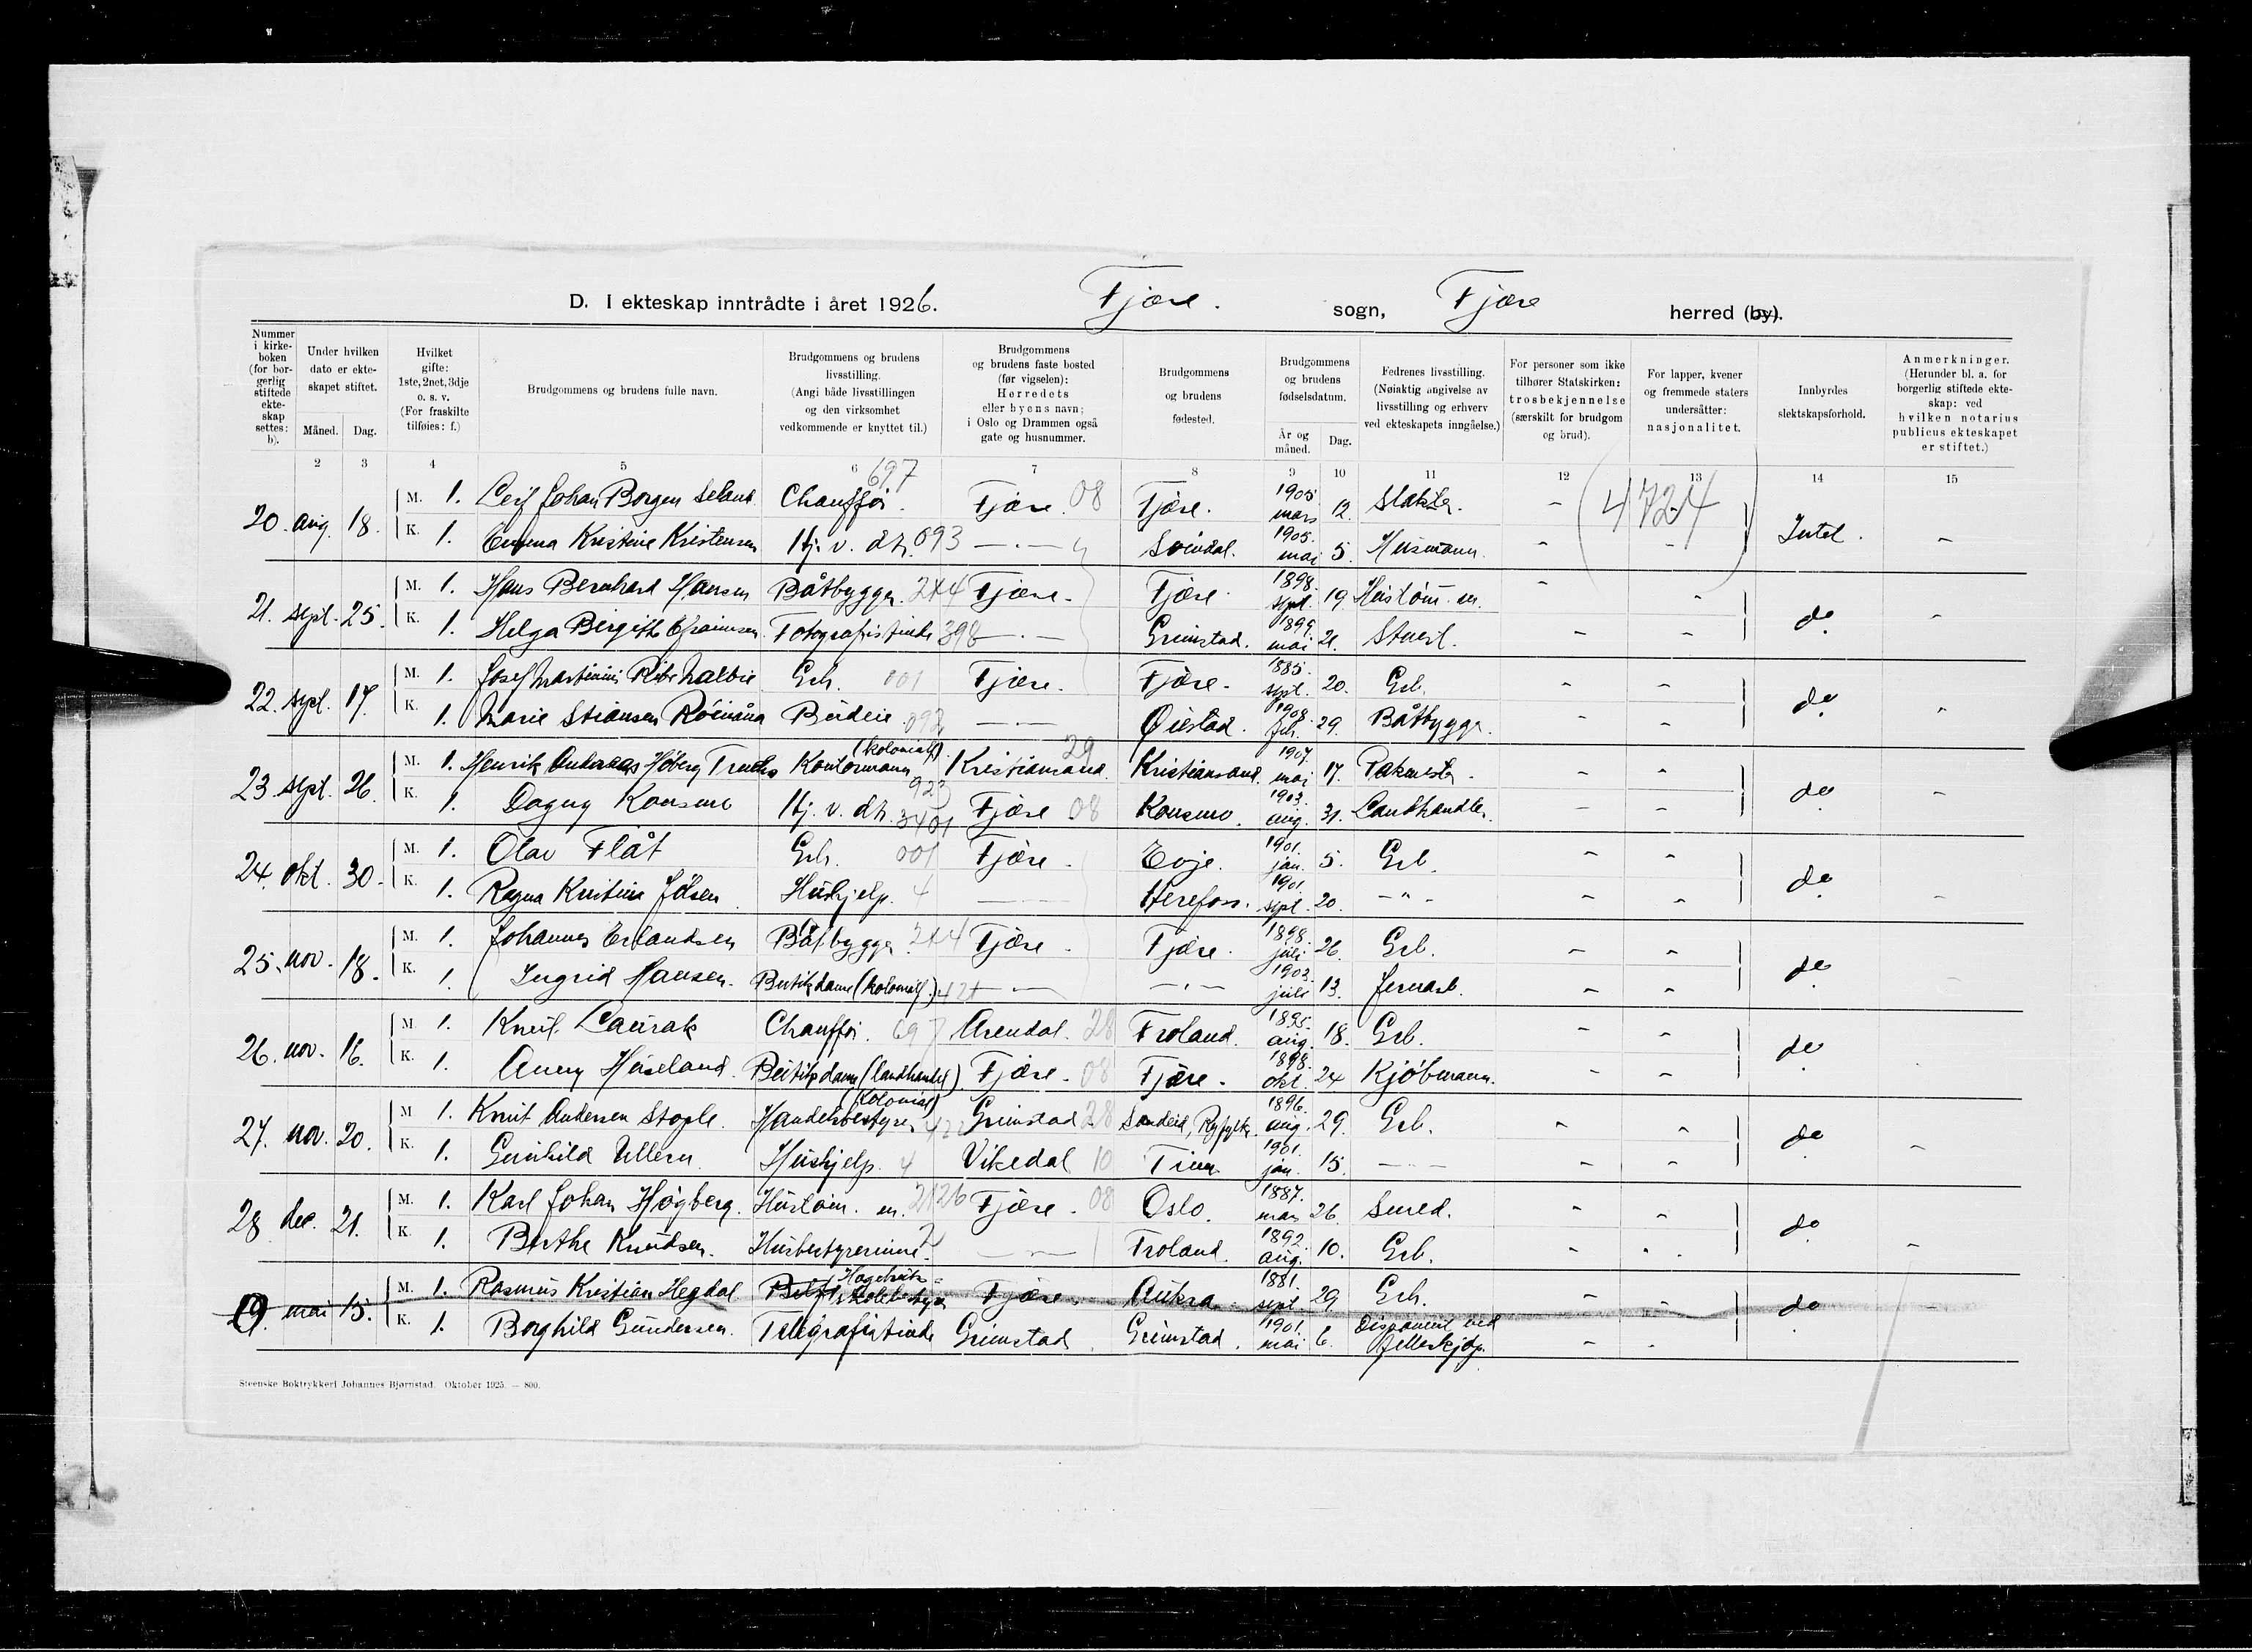 D. I ekteskap inntrådte i året 1926. Fjære. sogn, Fjære herred (by).
Nummer i kirkeboken (for borgerlig stiftede ekteskap settes: b).
Under hvilken dato er ekteskapet stiftet.
Måned. Dag.
Hvilket gifte: 1ste, 2net, 3dje o. s. v. (For fraskilte tilføies: f.)
Brudgommens og brudens fulle navn.
Brudgommens og brudens livsstilling. (Angi både livsstillingen og den virksomhet vedkommende er knyttet til.)
Brudgommens og brudens faste bosted (før vigselen): Herredets eller byens navn; i Oslo og Drammen også gate og husnummer.
Brudgommens og brudens fødested.
Brudgommens og brudens fødselsdatum.
År og måned. Dag.
Fedrenes livsstilling. (Nøiaktig angivelse av livsstilling og erhverv ved ekteskapets inngåelse.)
For personer som ikke tilhører Statskirken: trosbekjennelse (særskilt for brudgom og brud).
For lapper, kvener og fremmede staters undersåtter: nasjonalitet.
Innbyrdes slektskapsforhold.
Anmerkninger. (Herunder bl. a. for borgerlig stiftede ekteskap: ved hvilken notarius publicus ekteskapet er stiftet.)
2 3 4 5 6 7 8 9 10 11 12 13 14 15
20. aug. 18. M. 1. Leif Johan Borgen Seland Chauffør. 697 Fjære. 08 Fjære. 1905. mars 12. Slakter. - 4724 Intet.
K. 1. Emma Kristine Kristensen Hj. v. d h. 093 — . — Søndal. 1905. mai 5. Husmann. - - -
21. sept. 25. M. 1. Hans Bernhard Hansen Båtbygger. 244 Fjære. Fjære. 1898. sept. 19. Hustømm. m. - - do
K. 1. Helga Birgitte Efraimsen. Fotografistinde 398 — . — Grimstad. 1899. mai 21. Stuert. - - -
22. sept. 17. M. 1. Josef Martinius Ribe Grb. 001 Fjære. Fjære. 1885. sept. 20. Grb. - - do
K. 1. Marie Stiansen Budeie. 092 — . — Øiestad. 1908. feb. 29. Båtbygger. - - -
23. sept. 26. M. 1. Henrik Andreas Høberg Kontormann (kolonialf.) Kristiansand. 29 Kristiansand. 1907. mai 17. Pakmester. - - do
K. 1. Dagny Konsmo Hj. v. d h. 923 3401 Fjære 08 Konsmo. 1903. aug. 31. Landhandler. - - -
24. okt. 30. M. 1. Olav Flåt Grb. 001 Fjære. Evje. 1901. jan. 5. Grb. - - do
K. 1. Ragna Kristine Jølsen Hushjelp. 4 — Herefoss. 1901. sept. 20. — " — - - -
25. nov. 18. M. 1. Johannes Erlandsen Båtbygger. 244 Fjære. Fjære. 1898. juli 26. Grb. - - do
K. 1. Ingrid Hansen. Butikdame (kolonialf.) 421 — . — — . — 1903. juli 13. Jernarb. - - -
26. nov. 16. M. 1. Knut Laurak Chauffør. 697 Arendal. 28 Froland. 1895. aug. 18. Grb. - - do
K. 1. Anny Huseland. Butikdame (landhandel) Fjære. 08 Fjære. 1898. okt. 24 Kjøbmann. - - -
27. nov. 20. M. 1. Knut Andersen Stople. Handelsbestyrer (kolonial) 422 Grimstad 28 Sandeid, Ryfylke. 1896. aug. 29. Grb. - - do
K. 1. Gunhild Ullern Hushjelp. 4 Vikedal 10 1901. jan. 15. — - - -
28. dec. 21. M. 1. Karl Johan Høgberg. Hustøm. m. 2126 Fjære. 08 Oslo. 1887. mars 26. Smed. - - do
K. 1. Berthe Knudsen. Husbestyrerinne. 2 — . — Froland. 1892. aug. 10. Grb. - - -
19. mai 15. M. 1. Rasmus Kristian Hegdal Hagebruks= skolebestyrer Fjære. Aukra. 1881. sept. 29 Grb. - - do
K. 1. Borghild Gundersen. Telegrafistinde Grimstad. Grimstad. 1901. mai 6. Disponent ved Felleskjøp. - -
Steenske Boktrykkeri Johannes Bjørnstad. Oktober 1925. — 800.